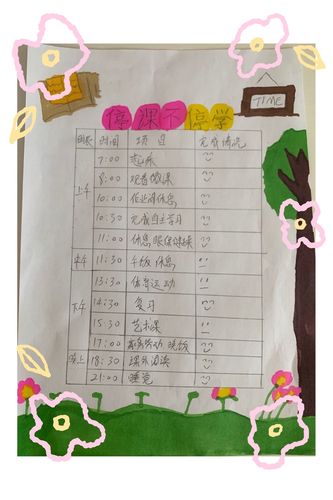 停课不停学
TIME
时间 项目 完成情况
上午
7:00 起床
8:00 观看微课
10:00 作业 休息
10:30 完成自主学习
11:00 休息 眼保健操
中午 11:30 午饭 休息
下午
13:30 体育运动
14:30 复习
15:30 艺术课
17:00 家务劳动 晚饭
晚上 18:30 课外阅读
21:00 睡觉